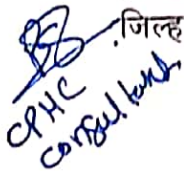 जिल्ह
CPHC
consultant